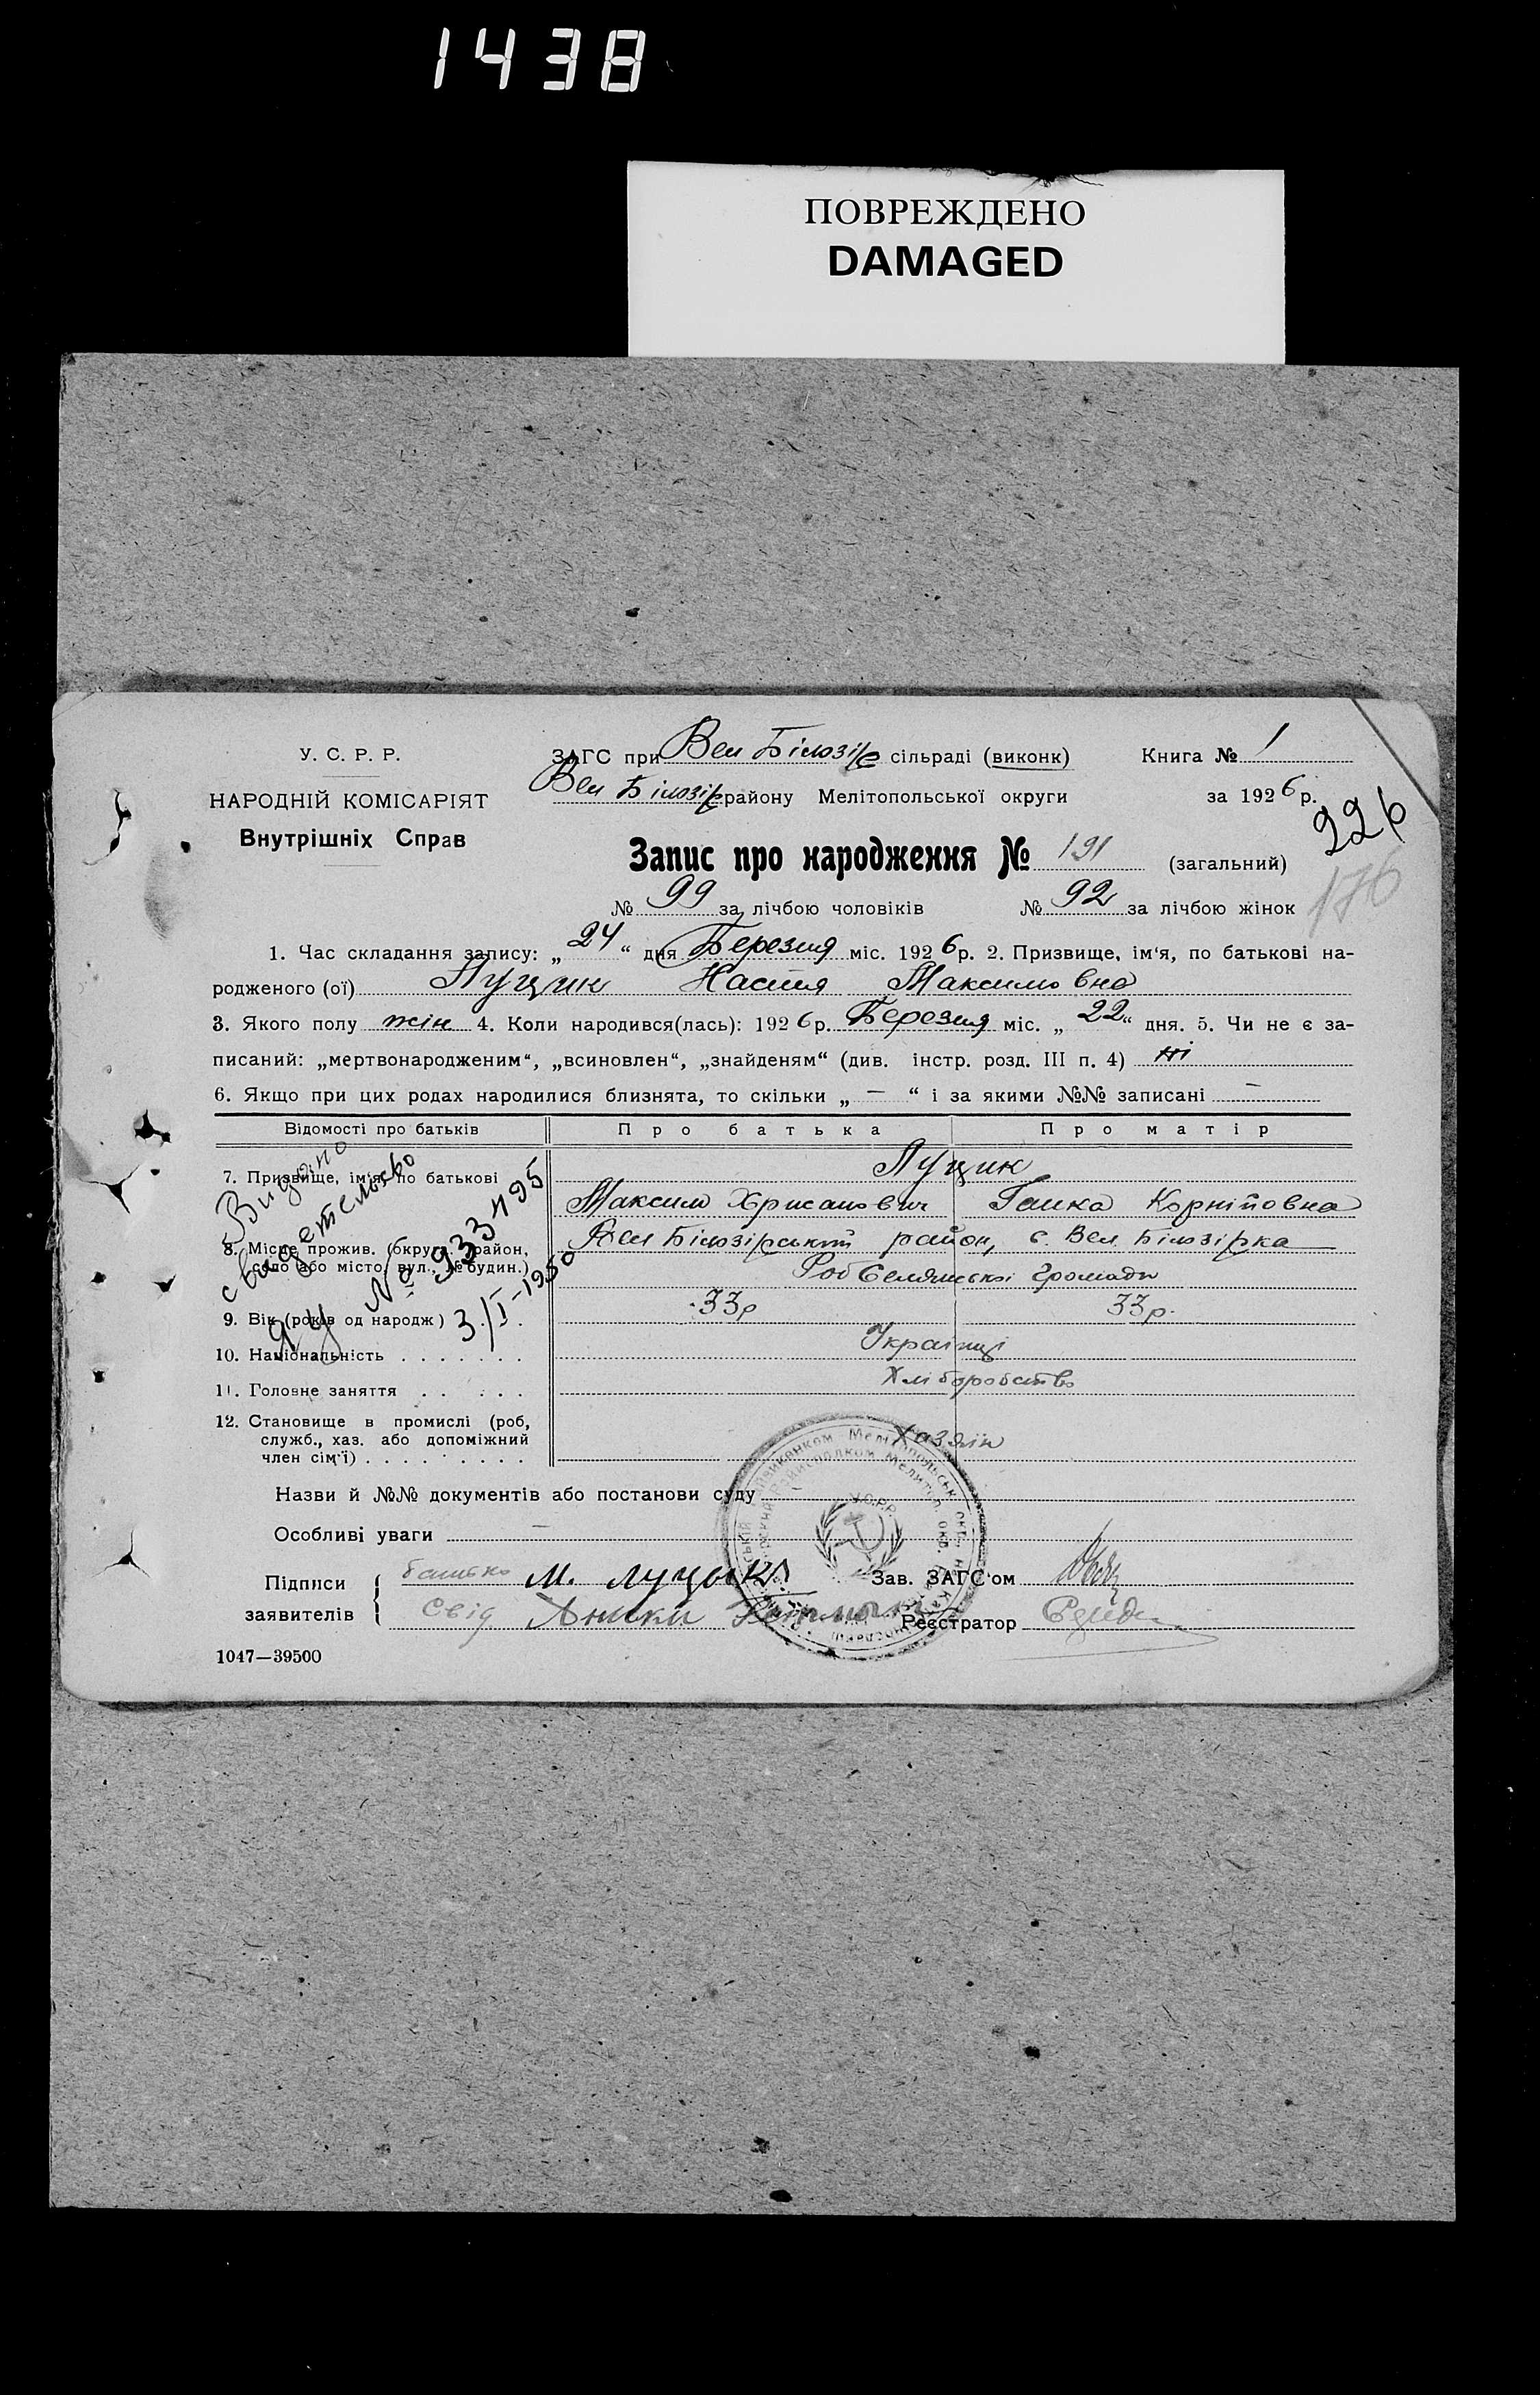 1438
ПОВРЕЖДЕНО
DAMAGED
У. С. Р. Р.
НАРОДНІЙ КОМІСАРІЯТ
Внутрішніх Справ
ЗАГС при Вел Білозір сільраді (виконк)
Книга № 1
Вел Білозір району Мелітопольської округи
за 1926 р.
226
Запис про народження № 191 (загальний)
176
№ 99 за лічбою чоловіків № 92 за лічбою жінок
1. Час складання запису: „ 24 “ дня Березня міс. 1926 р. 2. Призвище, ім'я, по батькові на-
родженого (ої) Луцик Настя Максимовна
3. Якого полу жін 4. Коли народився(лась): 1926 р. Березня міс. „ 22 “ дня. 5. Чи не є за-
писаний: „мертвонародженим“, „всиновлен“, „знайденям“ (див. інстр. розд. III п. 4) ні
6. Якщо при цих родах народилися близнята, то скільки „ — “ і за якими №№ записані —
Відомості про батьків
Про батька
Про матір
7. Призвище, ім'я, по батькові
Луцик
Максим Хрисанович
Ганка Корнітовна
8. Місце прожив. (округа, район,
село або місто, вул., № будин.)
Вел Білозірський район, с. Вел. Білозірка
Роб Селянської громади
9. Вік (років од народж)
33р
33р.
10. Національність . . . . . . .
Українці
11. Головне заняття . . . . . .
Хліборобство
12. Становище в промислі (роб,
служб., хаз. або допоміжний
член сім'ї) . . . . . . . . .
Хазяін
Видано
свидетельство
№ 933495
3/I-1950
Назви й №№ документів або постанови суду
Особливі уваги —
У.С.Р.Р.
Підписи
заявителів
батько М. Луцык
Свід
Зав. ЗАГС'ом
Реєстратор
1047—39500